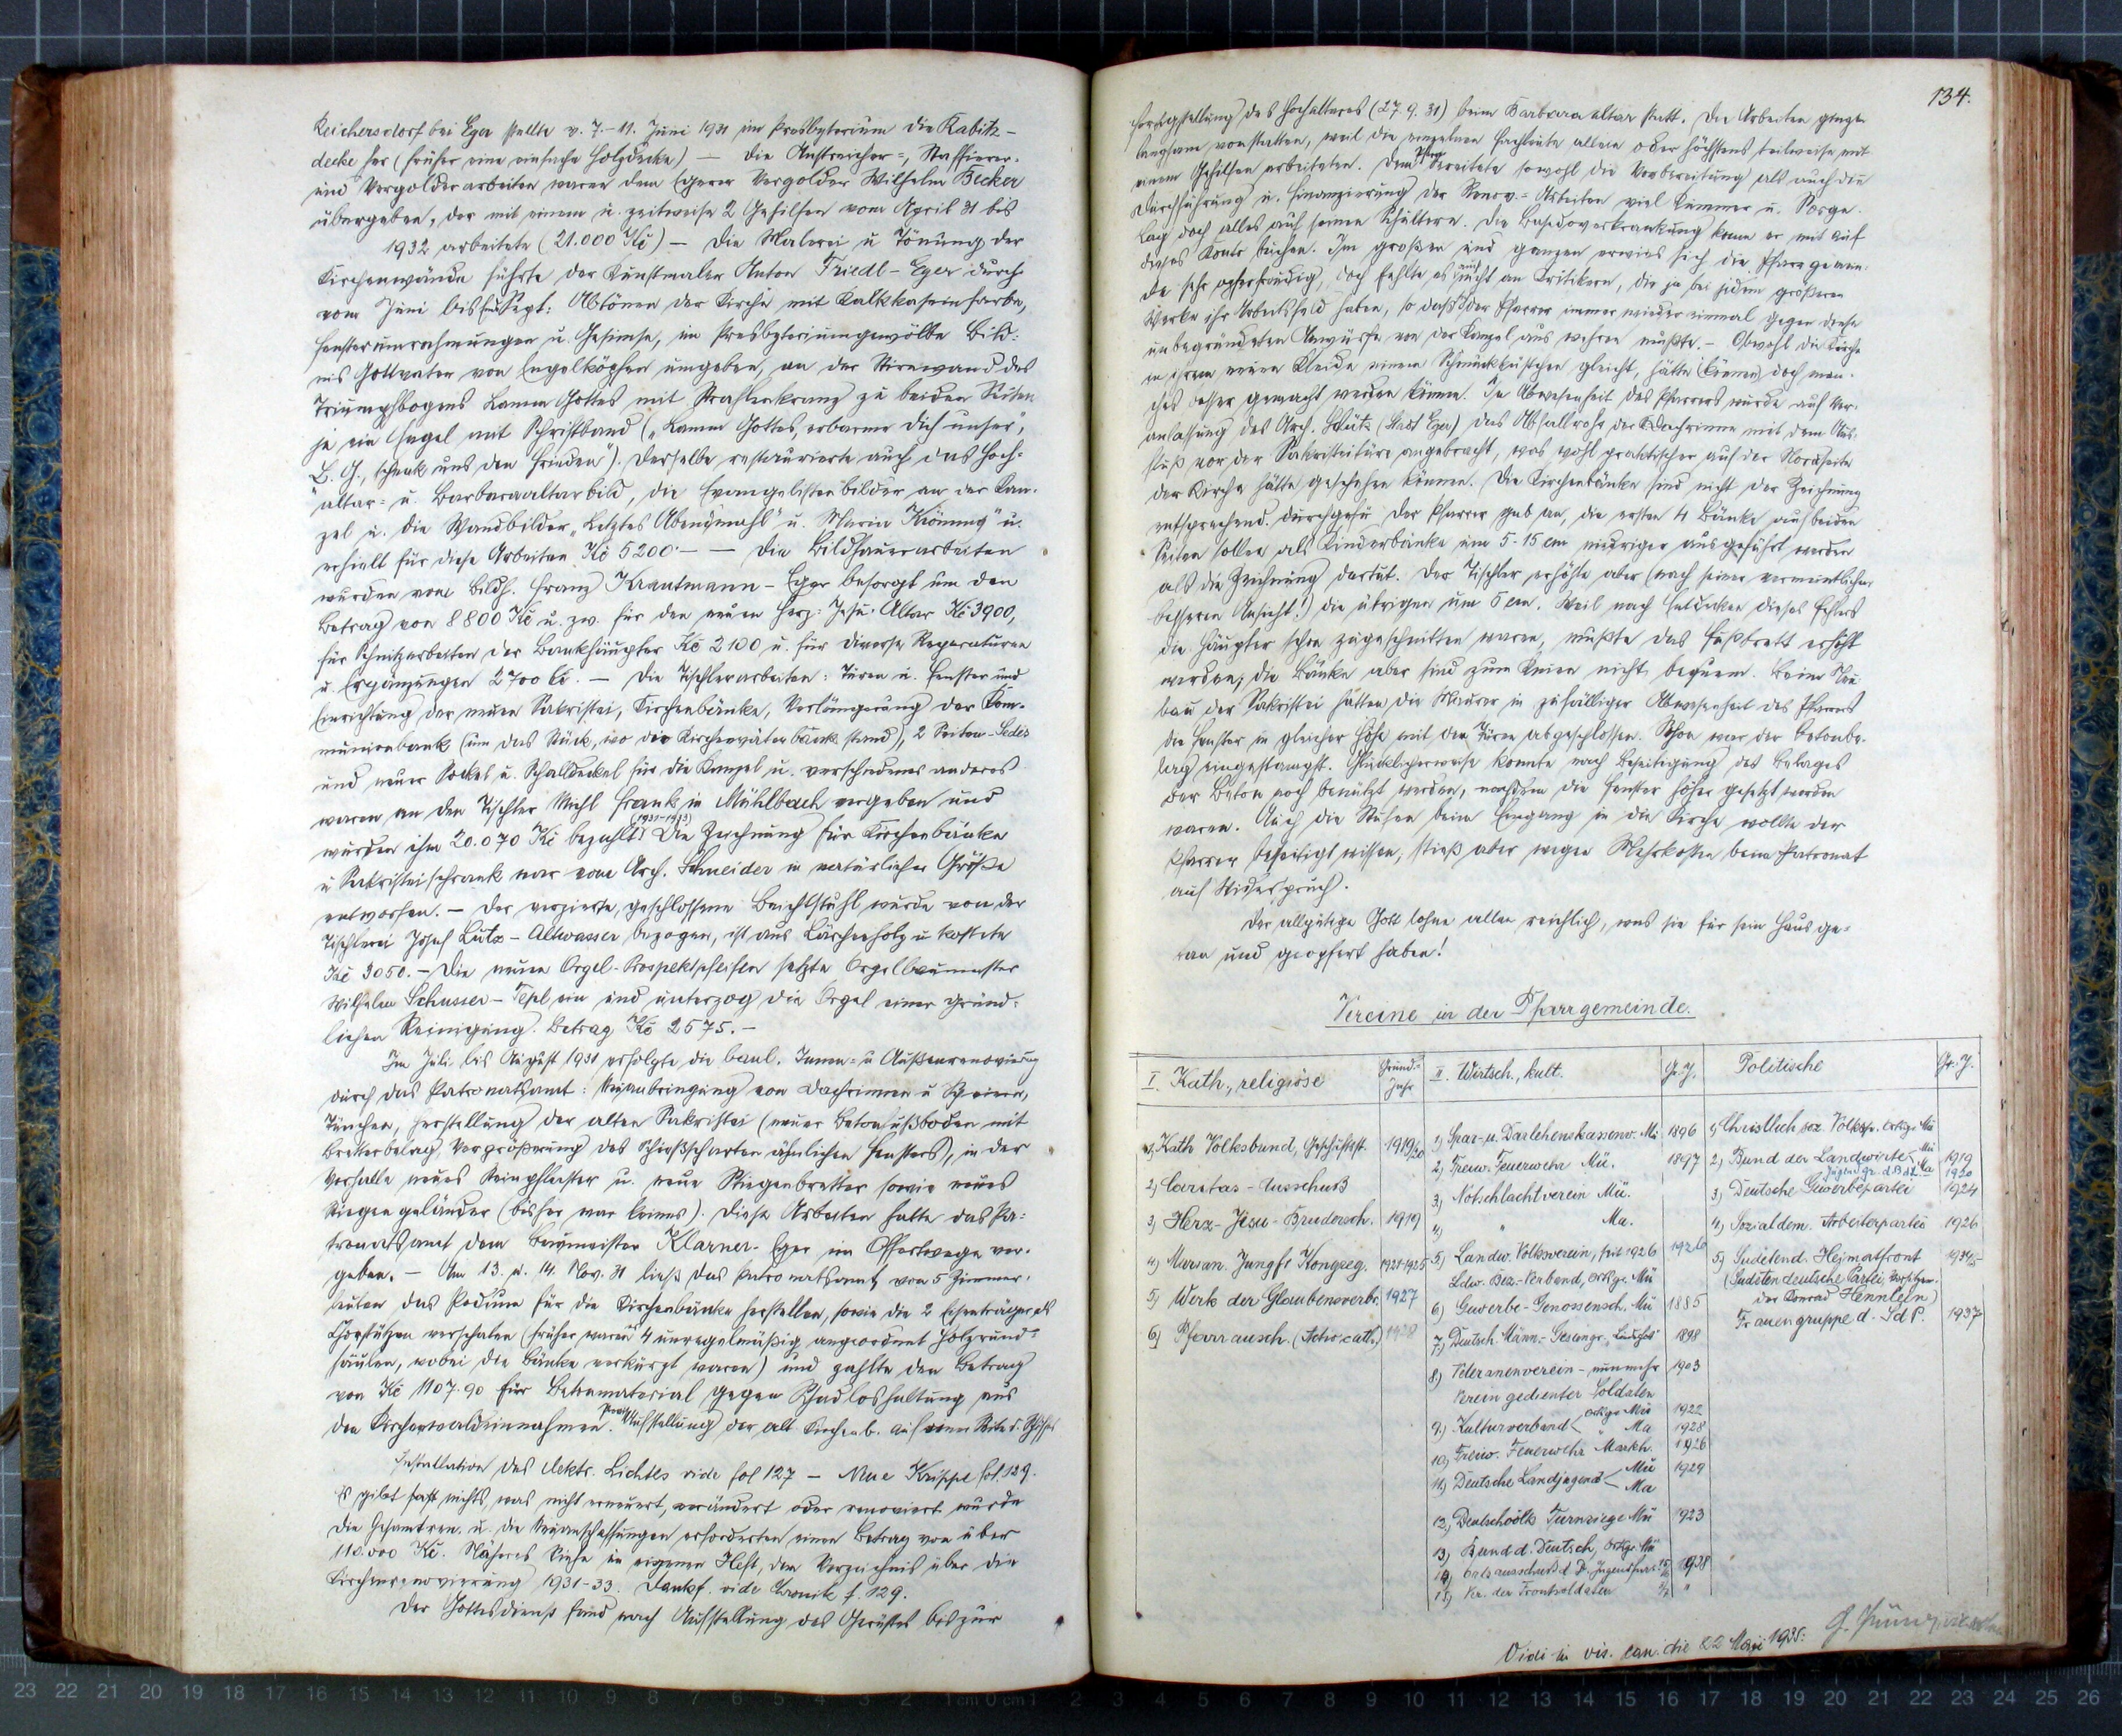 Reichersdorf bei Eger stellte v. 7.-11. Juni 1931 im Presbyterium die Rabitz-
decke her (früher eine einfache Holzdecke) — Die Anstreicher-, Staffierer-
und Vergolderarbeiten waren dem Egerer Vergolder Wilhelm Becker
übergeben, der mit einem u. zeitweise 2 Gehilfen vom April 31 bis
1932 arbeitete (21.000 Kč) — Die Malerei u Tönung der
Kirchenwände führte der Kunstmaler Anton Friedl - Eger durch
vom Juni bis Sept: Abtönen der Kirche mit Kalkkaseinfarbe,
Fensterumrahmungen u. Gesimse, im Presbyteriumgewölbe Bild-
nis Gottvater von Engelköpfen umgeben, an der Stirnwand des
Triumphbogens Lamm Gottes mit Strahlenkranz zu beiden Seiten
je ein Engel mit Schriftband („Lamm Gottes, erbarme dich unser",
L. G., schenk uns den Frieden"). Derselbe restaurierte auch das Hoch-
altar- u. Barbaraaltarbild, die Evangelistenbilder an der Kan-
zel u. die Wandbilder „Letztes Abendmahl" u. Maria Krönung" u.
erhielt für diese Arbeiten Kč 5200·— — Die Bildhauerarbeiten
wurden vom Bildh. Franz Krautmann - Eger besorgt um den
Betrag von 8800 Kč u. zw. für den neuen Herz-Jesu-Altar Kč 3900,
für Schnitzarbeiten der Bankhäupter Kč 2100 u. für diverse Reparaturen
u. Ergänzungen 2700 Kč. — Die Tischlerarbeiten: Türen u. Fenster und
Einrichtung der neuen Sakristei, Kirchenbänke, Verlängerung der Kom-
munionbank (um das Stück, wo die Kirchenväterbank stand), 2 Seiten-Sedes
und neuer Sockel u. Schalldeckel für die Kanzel u. verschiedenes anderes
waren an den Tischler Michl Frank in Mühlbach vergeben und
wurden ihm 20.070 Kč bezahlt (1931-1933) Die Zeichnung für Kirchenbänke
u Sakristeischrank war vom Arch. Schneider in natürlicher Größe
entworfen. — Der verzierte, geschlossene Beichtstuhl wurde von der
Tischlerei Josef Lutz - Altwasser bezogen, ist aus Lärchenholz u kostete
Kč 3050. — Die neuen Orgel-Prospektpfeifen setzte Orgelbaumeister
Wilhelm Schusser - Tepl ein und unterzog die Orgel einer gründ-
lichen Reinigung. Betrag Kč 2575.—
Im Juli bis August 1931 erfolgte die baul. Innen- u Außenrenovierung
durch das Patronatsamt: Neuanbringung von Dachrinnen u
Tünchen, Herstellung der alten Sakristei (neuer Betonfußboden mit
Bretterbelag, Vergrößerung des Schießscharten ähnlichen Fensters), in der
Vorhalle neues Steinpflaster u. neue Stiegenbretter sowie neues
Stiegengeländer (bisher war keines). Diese Arbeiten hatte das Pa-
tronatsamt dem Baumeister Klarner - Eger im Offertwege ver-
geben. — Am 13. u. 14. Nov. 31 ließ das Patronatsamt von 5 Zimmer-
leuten das Podium für die Kirchenbänke herstellen, sowie die 2 Eisenträger als
Chorstützen verschalen (früher waren 4 unregelmäßig angeordnet Holzrund-
säulen, wobei die Bänke verkürzt waren) und zahlte den Betrag
von Kč 1107.90 für Bretramaterial gegen Schadloshaltung aus
den Kirchenwaldeinnahmen. Aufstellung der alt Kirchenb. auf einer Seite d. Schiffes
Installation des elektr. Lichtes vide fol 127 — Neue Krippe fol. 129.
Es gibt fast nichts, was nicht erneuert, verändert oder renoviert wurde
Die Gesamtren. u. die Neuanschaffungen erforderten einen Betrag von über
110.000 Kč. Näheres siehe in eigenem Heft, dem Verzeichnis über die
Kirchenrenovierung 1931-33. Dankf. vide Chronik f. 129.
Der Gottesdienst fand nach Aufstellung des Gerüstes bis zur
134.
Fertigstellung des Hochaltares (27.9.31) beim Barbaraaltar statt. Die Arbeiten gingen
langsam vonstatten, weil die einzelnen Fachleute allein oder höchstens teilweise mit
einem Gehilfen arbeiteten. Dem Pfarrer bereitete sowohl die Vorbereitung als auch die
Durchführung u. Finanzierung der Renov.-Arbeiten viel Kummer u. Sorge.
Lag doch alles auf seinen Schultern. Die Basedowerkrankung kann er mit auf
dieses Konto buchen. Im großen und ganzen erwies sich die Pfarrgemein-
de sehr opferfreudig, doch fehlte es auch nicht an Kritikern, die ja bei jedem größeren
Werke ihr Arbeitsfeld haben, so daß der Pfarrer immer wieder einmal gegen diese
unbegründeten Anwürfe von der Kanzel aus wehren mußte. — Obwohl die Kirche
in ihrem neuen Kleide einem Schmuckkästchen gleicht, hätte (können) doch man-
ches besser gemacht werden können. In Abwesenheit des Pfarrers wurde auf Ver-
anlassung des Arch. Stütz (Stadt Eger) das Abfallrohr der Dachrinne mit dem Aus-
fluß vor der Sakristeitüre angebracht, was wohl praktischer auf der Nordseite
der Kirche hätte geschehen können. Die Kirchenbänke sind nicht der Zeichnung
entsprechend durchgefü Der Pfarrer gab an, die ersten 4 Bänke auf beiden
Seiten sollen als Kinderbänke um 5-15 cm niedriger ausgeführt werden
als die Zeichnung dartut. Der Tischler erhöhte aber (nach seiner vermeintlichen
besseren Ansicht!) die übrigen um 5 cm. Weil nach Entdecken dieses Fehlers
die Häupter schon zugeschnitten waren, mußte das Fußbrett erhöht
werden; die Bänke aber sind zum Knien nicht bequem. Beim Neu-
bau der Sakristei hatten die Maurer in zufälliger Abwesenheit des Pfarrers
die Fenster in gleicher Höhe mit den Türen abgeschlossen. Schon war der Betonbe-
lag eingestampft. Glücklicherweise konnte nach Beseitigung des Belages
der Beton noch benützt werden, nachdem die Fenster höher gesetzt worden
waren. Auch die Stufen beim Eingang in die Kirche wollte der
Pfarrer beseitigt wissen, stieß aber wegen Mehrkosten beim Patronat
auf Widerspruch.
Der allgütige Gott lohne allen reichlich, was sie für sein Haus ge-
tan und geopfert haben!
Vereine in der Pfarrgemeinde.
I. Kath., religiöse Gründ.- Jahr II. Wirtsch., kult. Gr. J. Politische Gr. J.
1) Kath Volksbund, Geschäftsst. 1919/20
2) Caritas-Ausschuß
3) Herz-Jesu-Brudersch. 1919
4) Marian. Jungfr. Kongreg. 1921-1925
5) Werk der Glaubensverbr. 1927
6) Pfarrausch. (Actio cath.) 1928
1) Spar- u. Darlehenskassenv. Mü 1896
2) Freiw. Feuerwehr Mü. 1897
3) Notschlachtverein Mü.
4) " Ma.
5) Landw. Volksverein, seit 1926 1926
Ldw. Bez.-Verband, Ortsgr. Mü
6) Gewerbe-Genossensch. Mü 1885
7) Deutsch. Männ.-Gesangv. 1898
8) Veteranenverein - nunmehr 1903
Verein gedienter Soldaten
9.) Kulturverband Ortsgr. Mü 1922
" Ma 1928
10) Freiw. Feuerwehr Markh. 1926
11) Deutsche Landjugend Mü 1929
Ma
12.) Deutschvölk Turnriege Mü 1923
13) Bund d. Deutsch, Ortsgr. Mü
14) Ortsausschuß d D. Jugendfürs. 1938
15) Ver. der Frontsoldaten "
1) Christlich soz. Volksp. Ortsgr. Mü
2) Bund der Landwirte Mü 1919
Jugendgr. d. B d L Ma 1920
3) Deutsche Gewerbepartei 1924
4) Sozialdem. Arbeiterpartei 1926
5) Sudetend. Heimatfront 1934/5
(Sudetendeutsche Partei, Vorsitzen-
der Konrad Hennlein)
Frauengruppe d. SdP. 1937
Vidi in vis. can. die 22 Maji 1935: